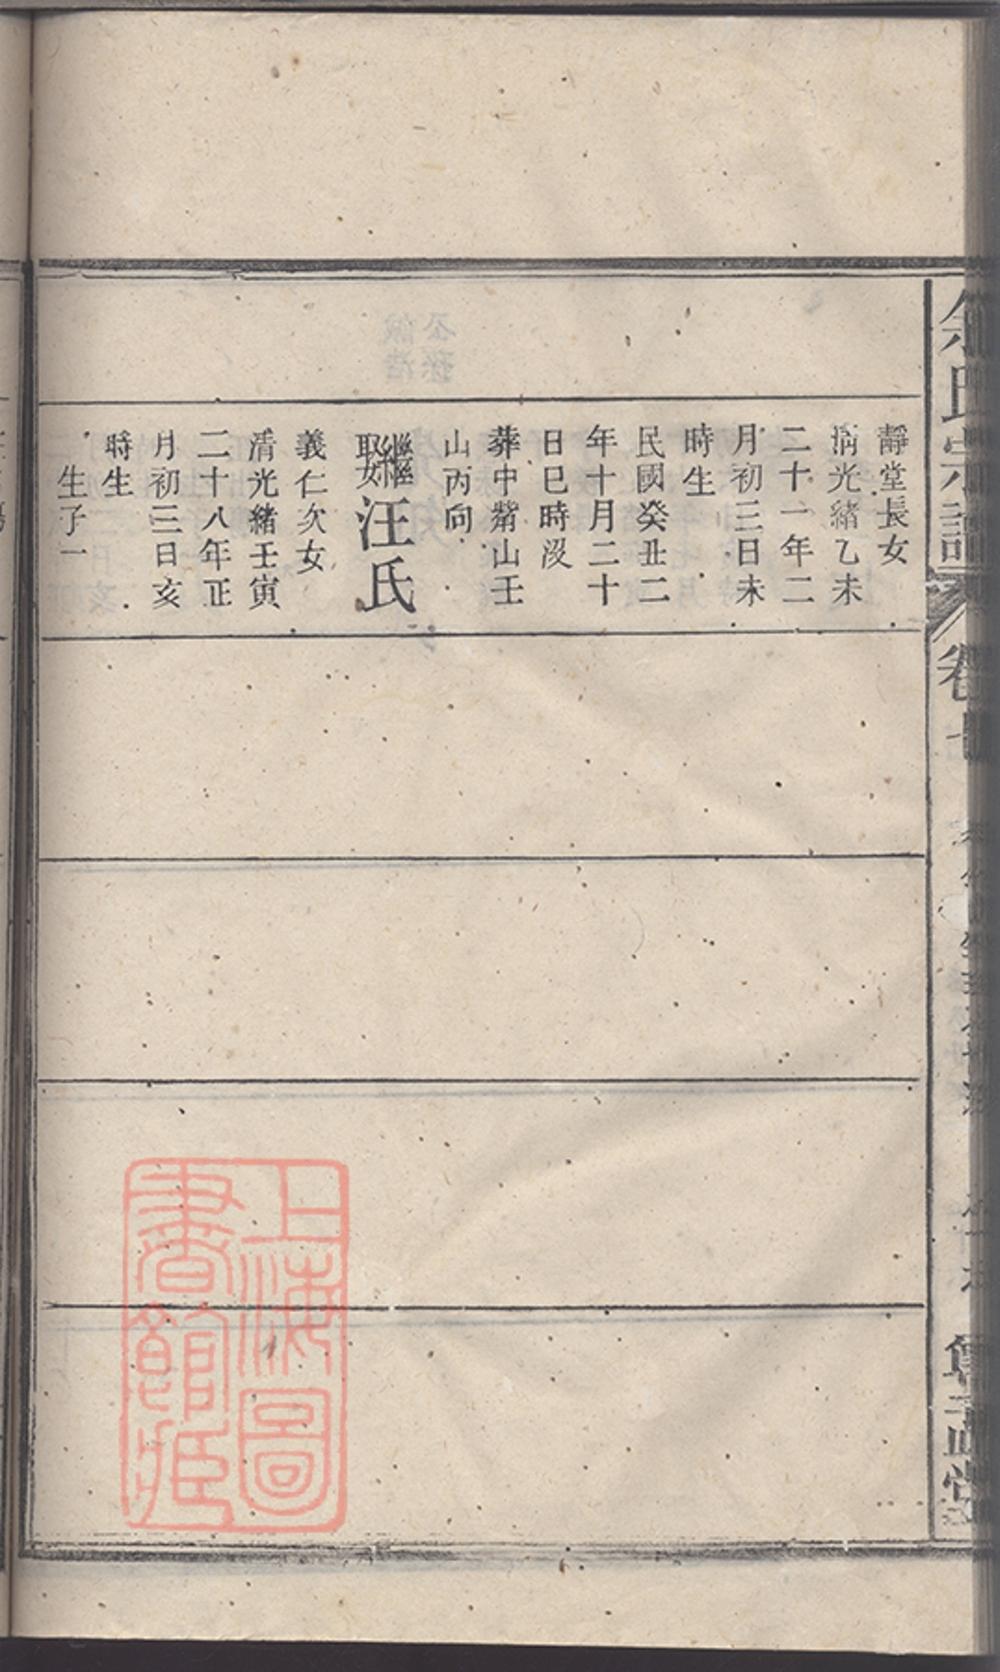 靜堂長女
清光緒乙未
二十一年二
月初三日未
時生
民國癸丑二
年十月二十
日巳時沒
葬中觜山壬
山丙向
繼娶汪氏
義仁次女
清光緒壬寅
二十八年正
月初三日亥
時生
生子一
余氏宗譜
卷七
上海圖
書館藏